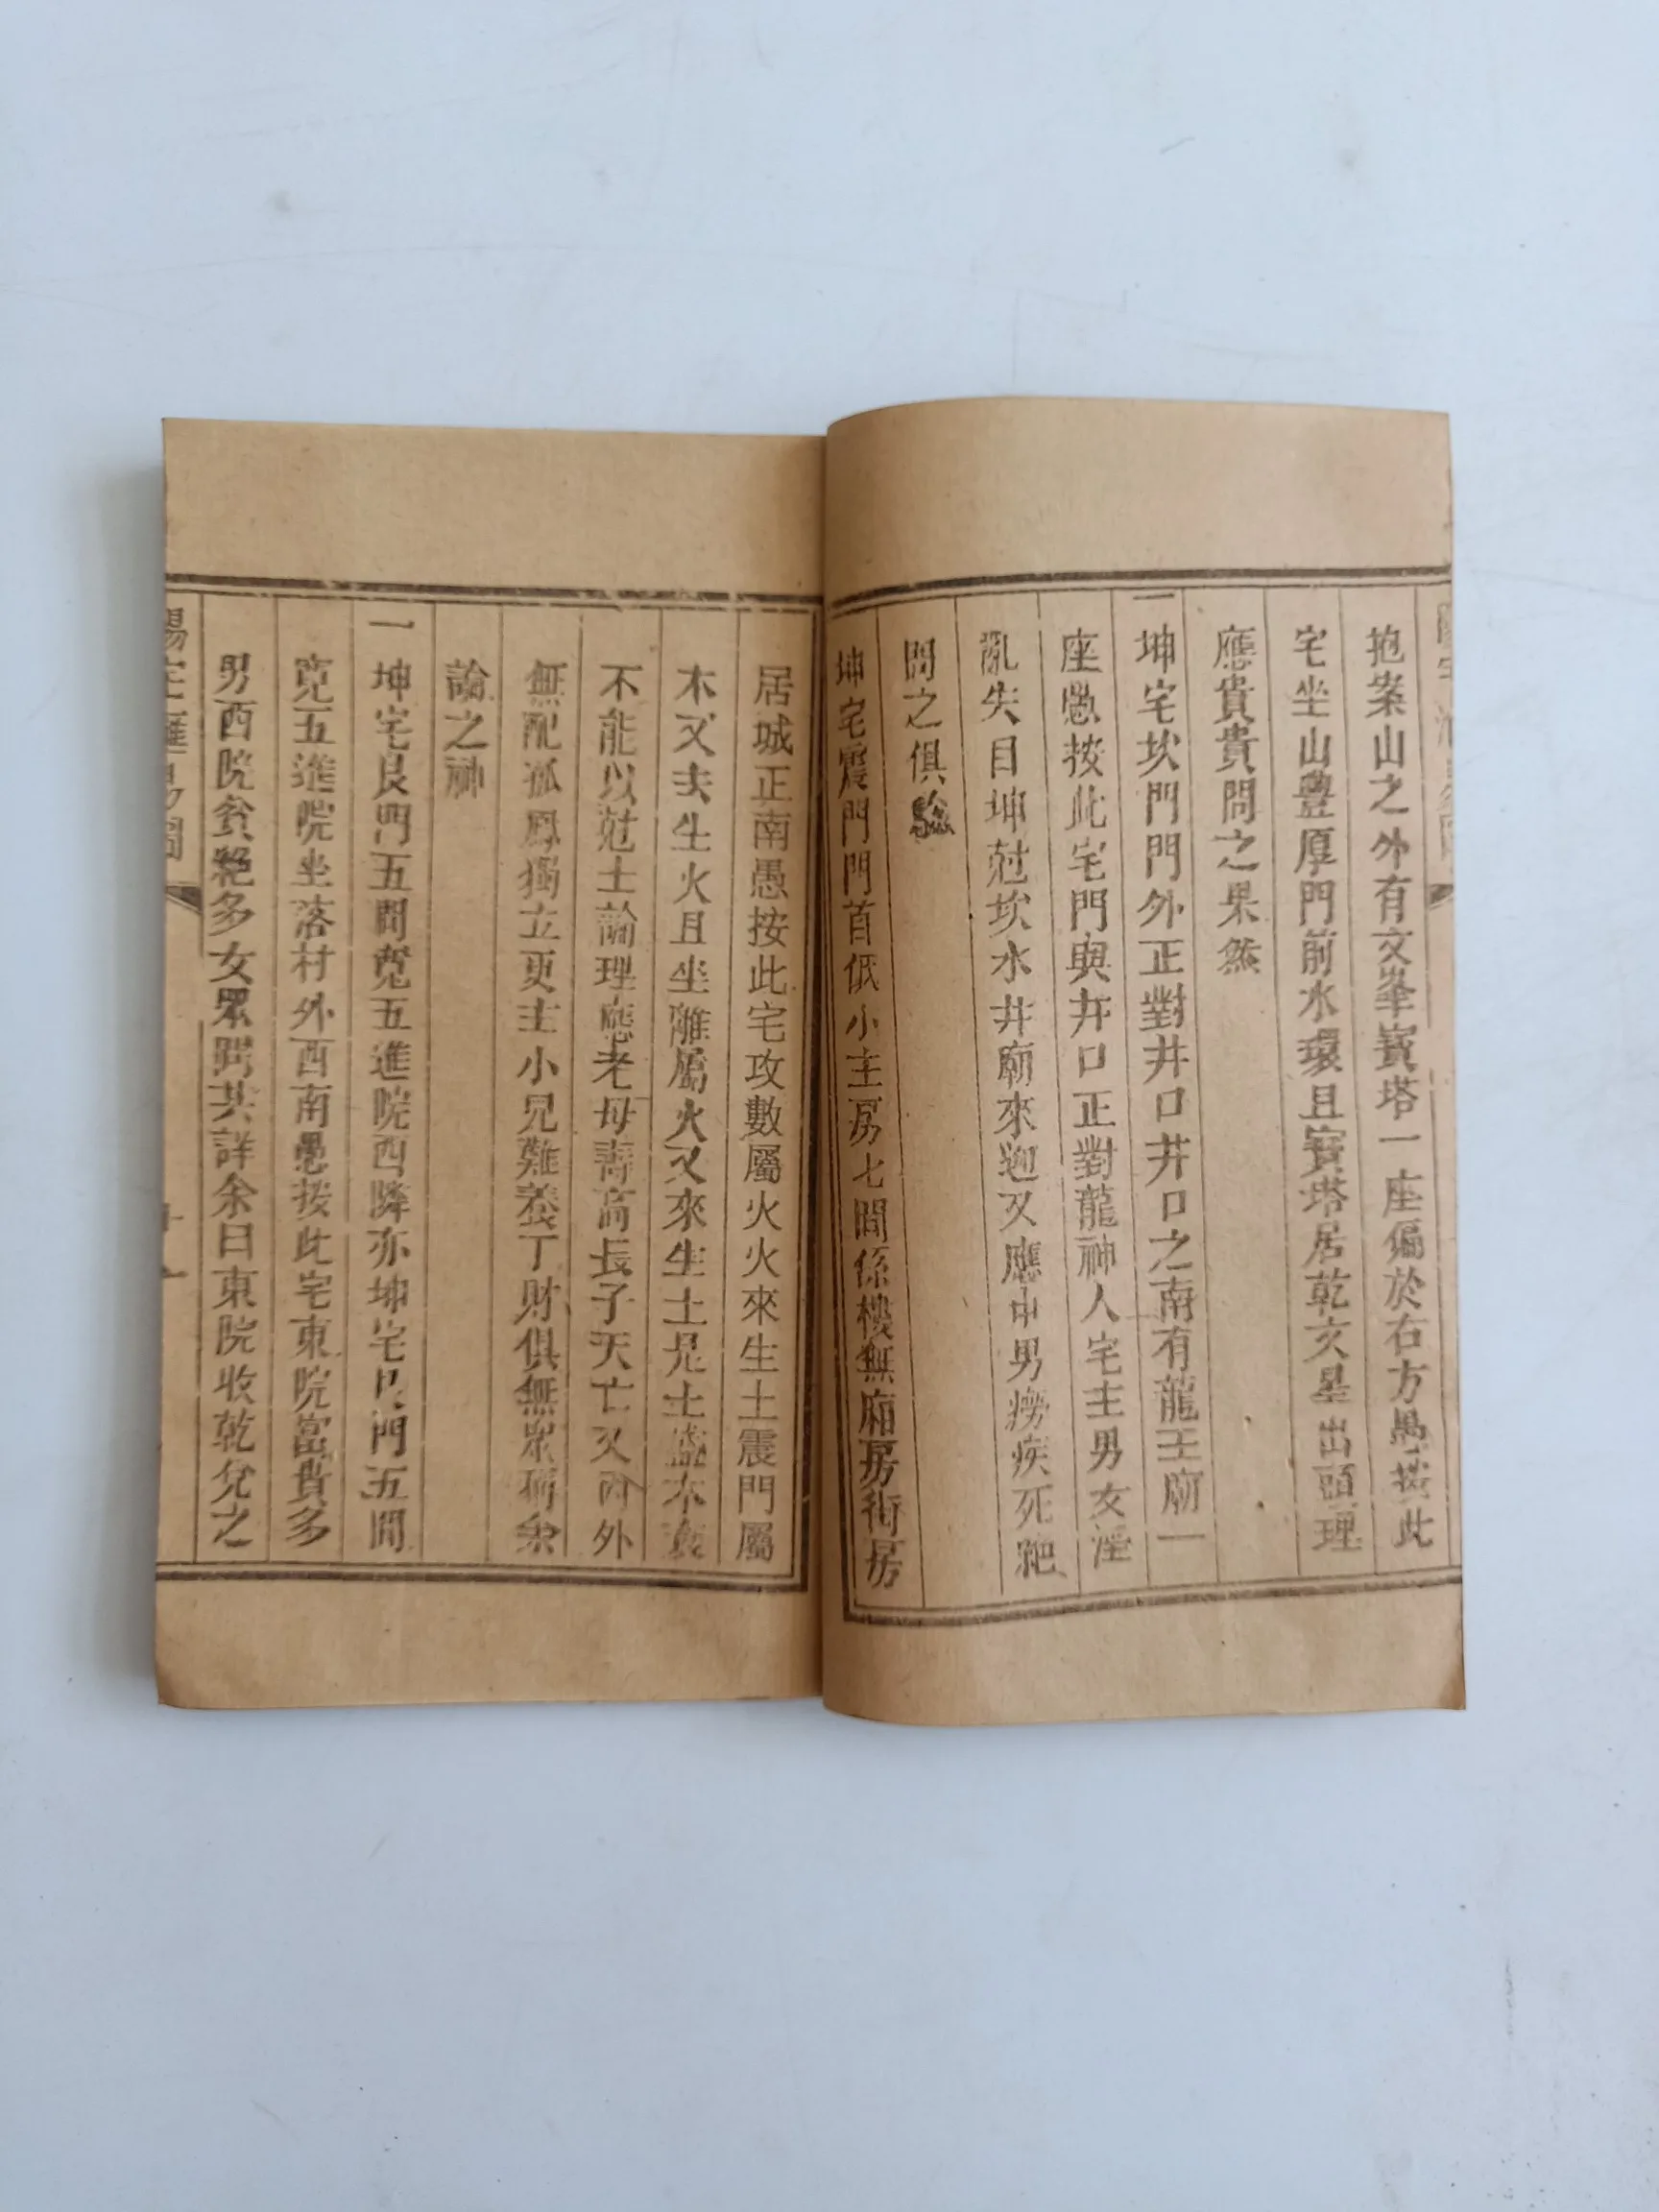 抱案山之外有文峯寳塔一座偏於右方愚按此
宅坐山豊厚門前水環且寳塔居乾亥星出頭理
應貴貴問之果然
一坤宅坎門門外正對井口井口之南有龍王廟一
座愚按此宅門與井口正對龍神人宅主男女淫
亂失目坤尅坎水井廟來迎又應中男癆疾死絶
問之俱驗
坤宅震門門首低小主房七間係樓無廂房街房
居城正南愚按此宅攻數屬火火來生土震門屬
木又去生火且坐離屬火又來生土是土盛木衰
不能以尅土論理應老母壽高長子夭亡又丙外
無配孤鳳獨立更主小兒難養丁財俱無衆稱余
論之神
一坤宅艮門五間寛五進院西隣亦坤宅艮門五間
寛五進院坐落村外西南愚按此宅東院富貴多
男西院貧絶多女眾問其詳余曰東院收乾兌之
陽宅